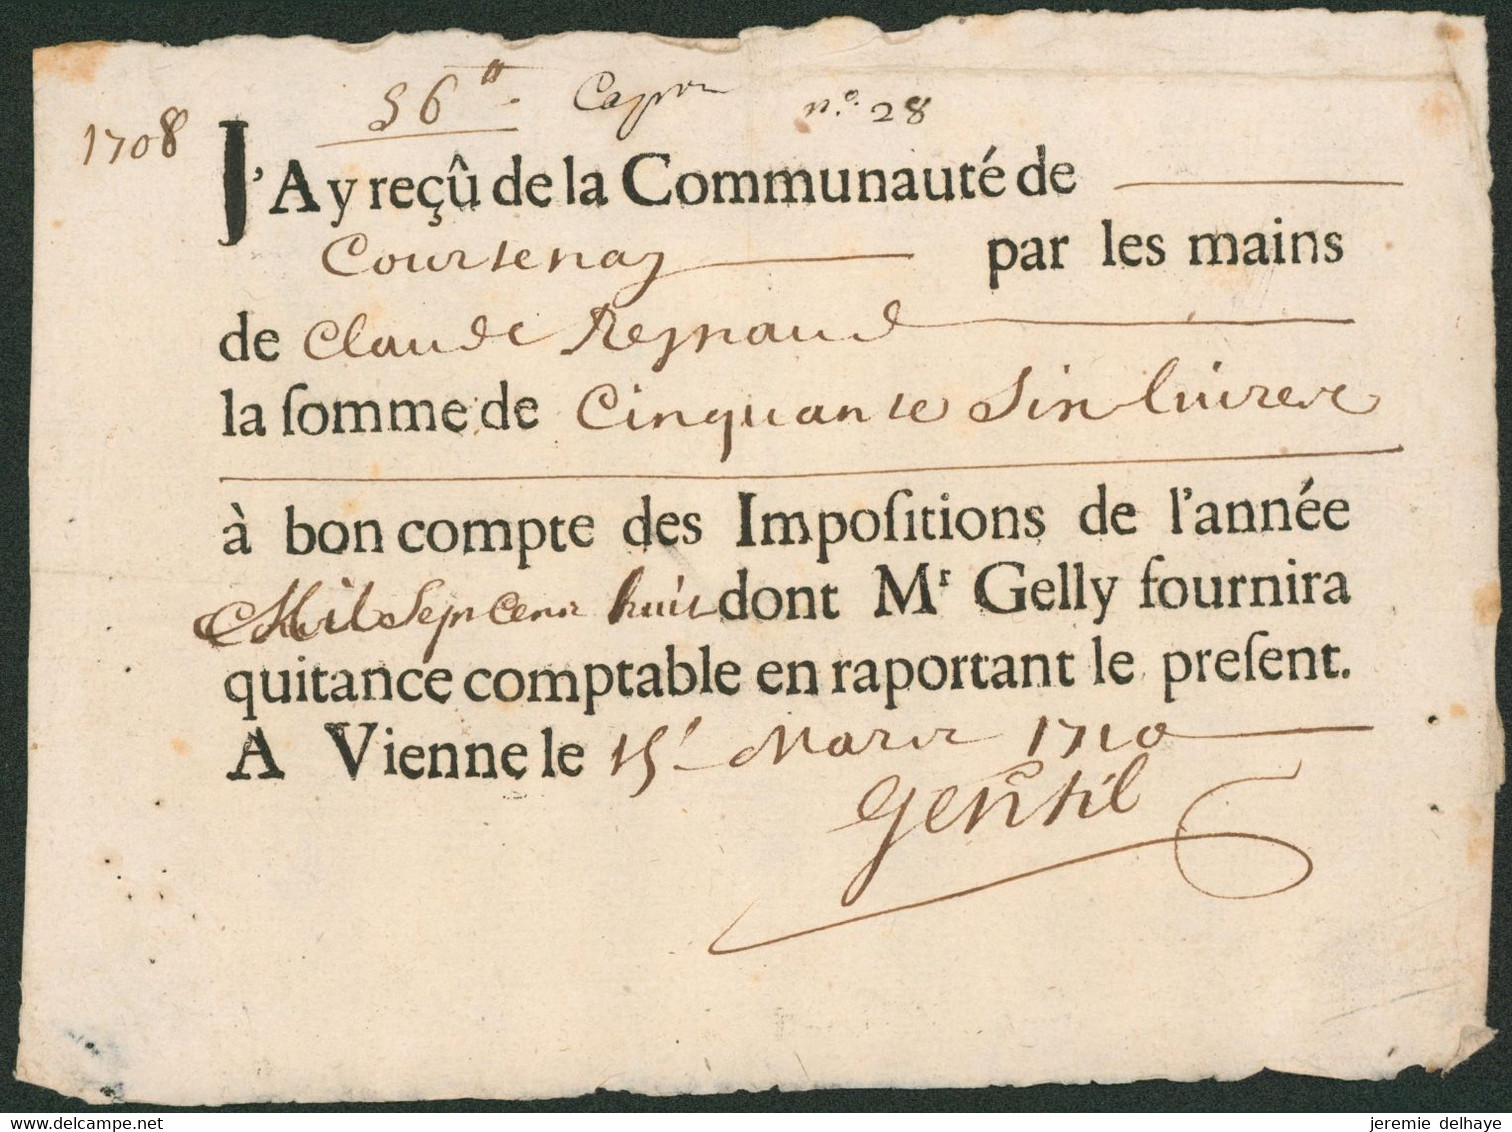 56 ₶ n.º 28
1708
J'Ay reçû de la Communauté de
Courtenay par les mains
de Claude Reynaud
la ſomme de Cinquante Six livres
à bon compte des Impoſitions de l'année
Mil Sept Cent huit dont Mr Gelly fournira
quitance comptable en raportant le preſent.
A Vienne le 15 Mars 1710
Gentil
delcampe.net
jeremie delhaye